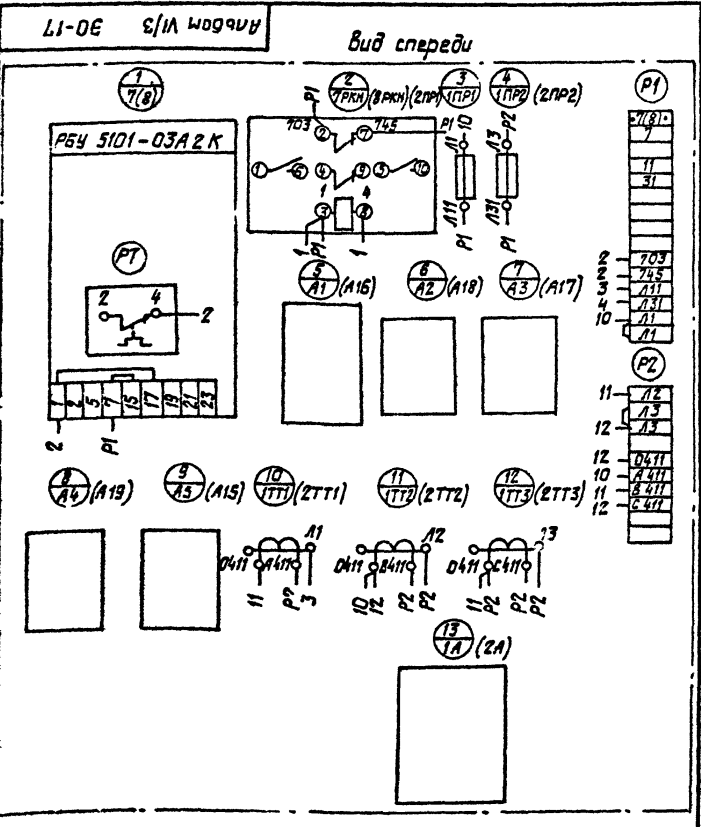 Альбом VI/3 ЭО-17
Вид спереди
1
7(8)
2
7РКН (8РКН) (2ПР1)
3
1ПР1
4
1ПР2 (2ПР2)
Р1
РБУ 5101-03А2К
РТ
2 4
2
1 2 5 7 15 17 19 21 23
2 Р1
Р1
703 2 7 745 Р1
1 6 4 9 5 10
1 4
3 8
1 Р1 1
10
Л1
Л11
Р1
Р2
Л3
Л31
Р1
7(8)
7
11
31
2 703
2 745
3 Л11
4 Л31
10 Л1
Л1
Р2
11 Л2
Л3
12 Л3
12 0411
10 А411
11 В411
12 С411
5
А1 (А16)
6
А2 (А18)
7
А3 (А17)
8
А4 (А19)
9
А5 (А15)
10
1ТТ1 (2ТТ1)
11
1ТТ2 (2ТТ2)
12
1ТТ3 (2ТТ3)
Л1
0411 А411
11 Р2 3
Л2
0411 В411
10 12 Р2 Р2
0411 С411
11 Р2 Р2 Р2
13
1А (2А)